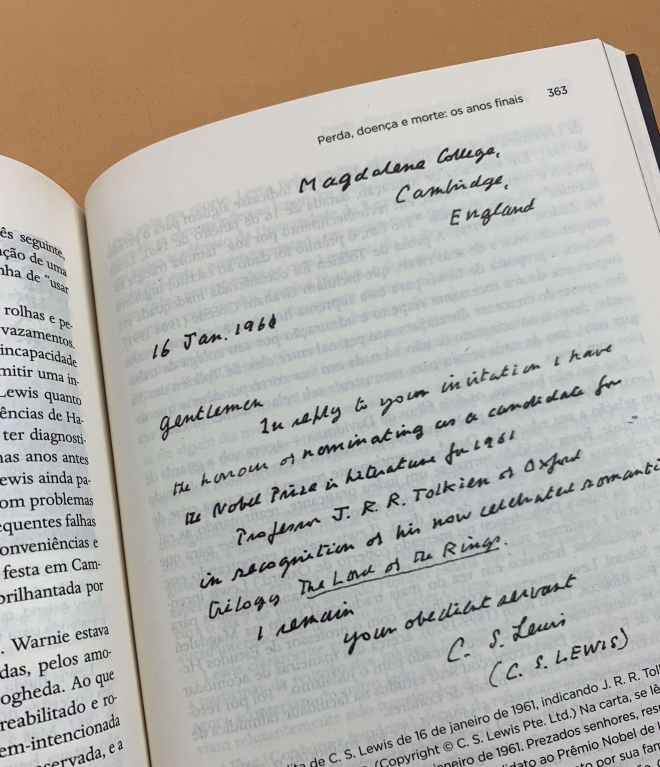 ês seguinte,
ção de uma
nha de "usar
rolhas e pe-
vazamentos.
incapacidade
mitir uma in-
Lewis quanto
ências de Ha-
ter diagnosti-
nas anos antes
ewis ainda pa-
om problemas
equentes falhas
onveniências e
festa em Cam-
brilhantada por
. Warnie estava
das, pelos amo-
ogheda. Ao que
reabilitado e ro-
em-intencionada
servada, e a
Perda, doença e morte: os anos finais 363
Magdalene College,
Cambridge,
England
16 Jan. 1961
Gentlemen
In reply to your invitation I have
the honour of nominating as a candidate for
the Nobel Prize in Literature for 1961
Professor J. R. R. Tolkien of Oxford
in recognition of his now celebrated romantic
trilogy The Lord of the Rings.
I remain
your obedient servant
C. S. Lewis
(C. S. LEWIS)
dita de C. S. Lewis de 16 de janeiro de 1961, indicando J. R. R. Tol
. (Copyright © C. S. Lewis Pte. Ltd.) Na carta, se lê
janeiro de 1961. Prezados senhores, res
didato ao Prêmio Nobel de
to por sua fam